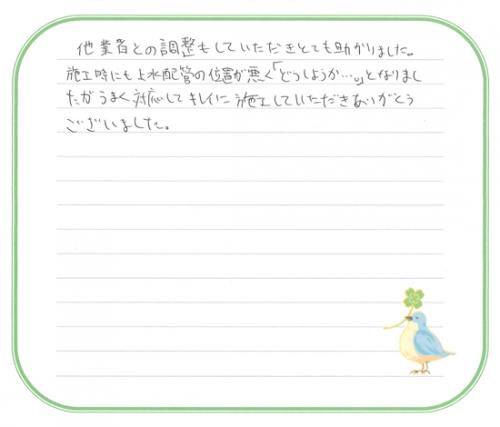 他業者との調整もしていただきとても助かりました。
施工時にも上水配管の位置が悪く「どうしようか…。」となりまし
たがうまく対応してキレイに施工していただきありがとう
ございました。